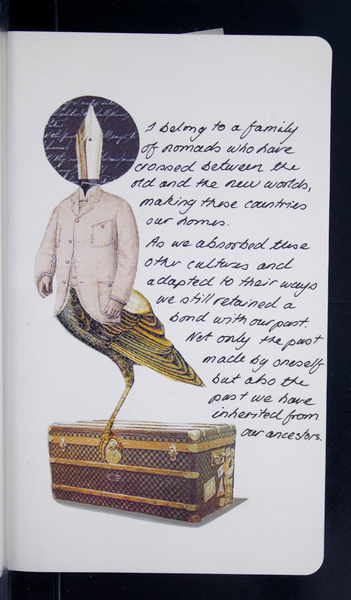 I belong to a family
of nomads who have
crossed between the
old and the new worlds,
making these countries
our homes.
As we absorbed these
other cultures and
adapted to their ways
we still retained a
bond with our past.
Not only the past
made by oneself
but also the
past we have
inherited from
our ancestors.